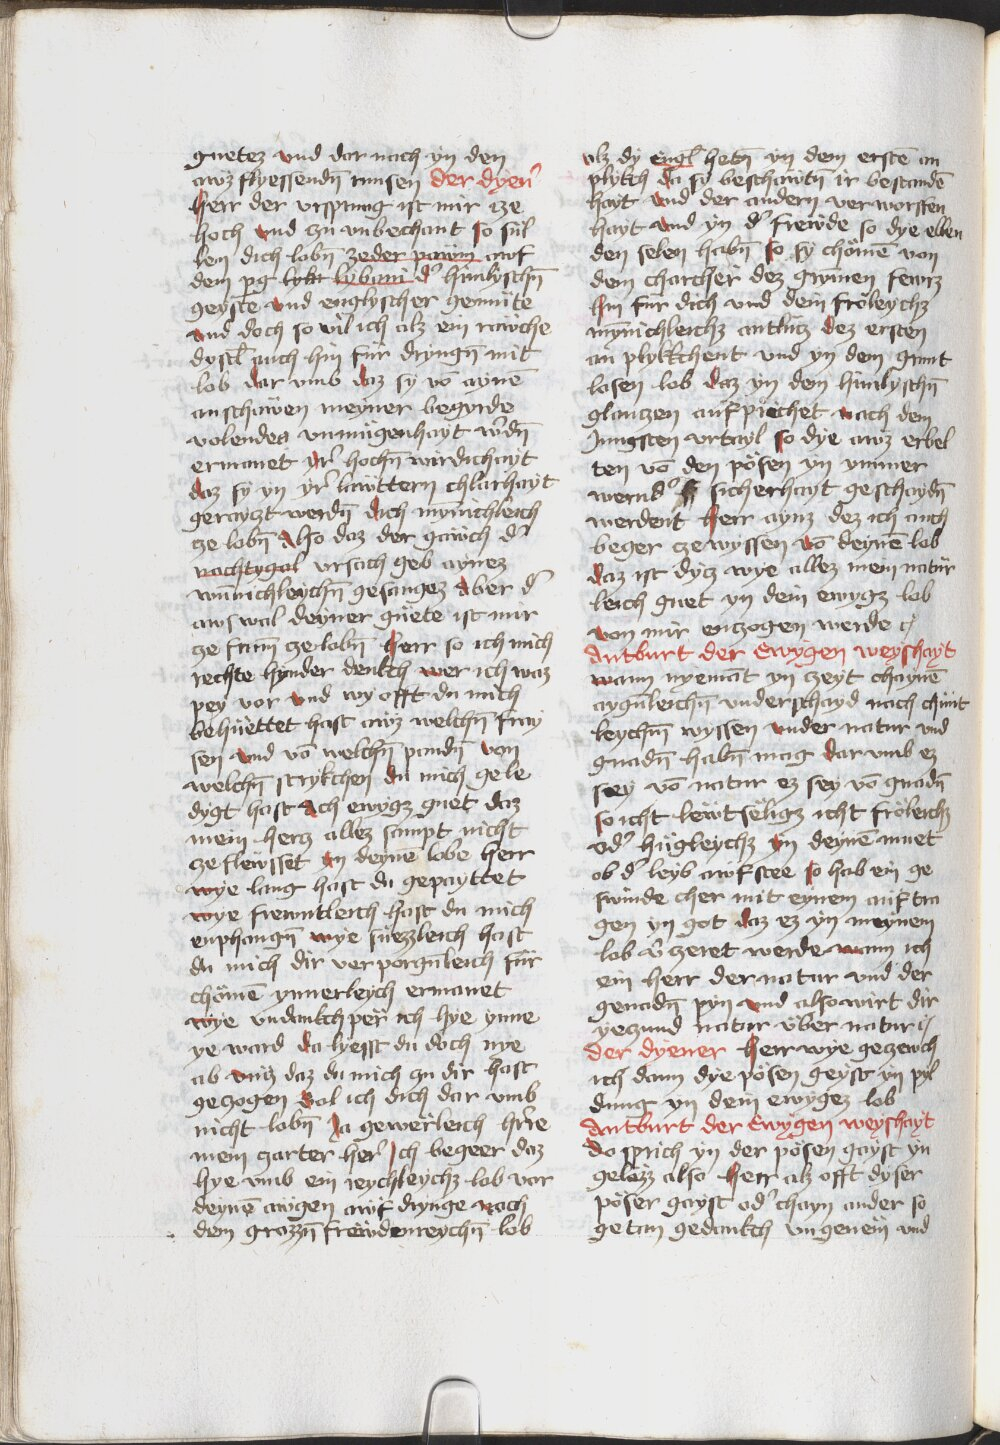 guetez vnd dar nach yn den
awz flyessendn̄ runsen der dyen̄
herr der vrsprung ist mir cze
hoch vnd zu vnbechant so sül
len dich lobn̄ zeder pawm awf
dem pg lybani d' himlyschn̄
geyste vnd englyscher gemüte
vnd doch so wil ich alz ein rawche
dystl auch hin für dryngn̄ mit
lob dar vmb daz sy vō aynē
anschawen meyner begyrde
volenden vnmügenhayt w'dn̄
ermanet yr' hochn̄ wirdichayt
daz sy yn yr' lawttern chlarhayt
geraytzt werdn̄ dich mynichleich
ze lobn̄ Also daz der gawch d'
nachtygal vrsach geb aynez
wunichleychn̄ gesangez Aber d'
aws wal deyner guete ist mir
ze frum ze lobn̄ herr so ich mich
rechte hynder denkch wer ich waz
pey vor vnd wy offt du mich
behüettet hast awz welchn̄ fray
sen vnd vō welchn̄ pandn̄ von
welchn̄ strykchen du mich gele
dygt hast Ach ewygz guet daz
mein hercz allez sampt nicht
ze flewsset yn deynē lobe herr
wye lang hast du gepayttet
wye frewntleich hast du mich
enphangn̄ wye suezzleich hast
du mich dir verporgnleich für
chömē ynnerleych ermanet
wye vndankchper ich hye ynne
ye ward da lyesst du doch nye
ab vniz daz du mich zu dir hast
geczogen Sal ich dich dar vmb
nicht lobn̄ Ja gewerleich hr̄re
mein zarter her' Ich begeer daz
hye vmb ein reychleychz lob vor
deynē awgen awf drynge nach
dem grozzn̄ frewdenreychn̄ lob
alz dy engl hetn̄ yn dem erstē an
plykch da sy beschawtn̄ ir bestandē
hayt vnd der andern verworffen
hayt vnd yn d' frewde so dye ellen
den selen habn̄ so sy chömē von
dem charcher dez grymen fewrz
hin für dich vnd dein fröleychz
mynichleichz antlicz dez ersten
an plykchent vnd yn dem grunt
losen lob daz yn dem himlyschn̄
glanczen aufprichet nach dem
Jungsten vrtayl so dye awz erbel
ten vō den pösen yn ymmer
wernd' sicherhayt geschaydn̄
werdent herr aynz dez ich auch
beger cze wyssen vō deynē lob
daz ist dyz wye allez mein natür
leich guet yn dein ewygz lob
von mir enczogen werde
Antburt der Ewygen weyshayt
wann nyemāt yn zeyt chaynē
aygnleichn̄ vnderschayd nach chünt
leychn̄ wyssen vnder natur vnd
gnadn̄ habn̄ mag dar vmb ez
sey vō natur ez sey vō gnadn̄
so icht lewtseligz icht fröleichz
od' hügleychz yn deynē muet
ob d' leyb awfstee so hab ein ge
swinde cher mit eynem auf tra
gen yn got daz ez yn meynem
lob v'zeret werde wann ich
ein herr der natur vnd der
genadn̄ pyn vnd also wirt dir
yeczund natur über natur
der dyener herr wye geczewch
ich dann dye pösen geyst yn pyl
dung yn dein ewygez lob
Antburt der Ewygen weyshayt
do sprich yn der pösen gayst yn
gelazz also herr alz offt dyser
pöser gayst od' chayn ander so
getan gedankch vngenem vnd